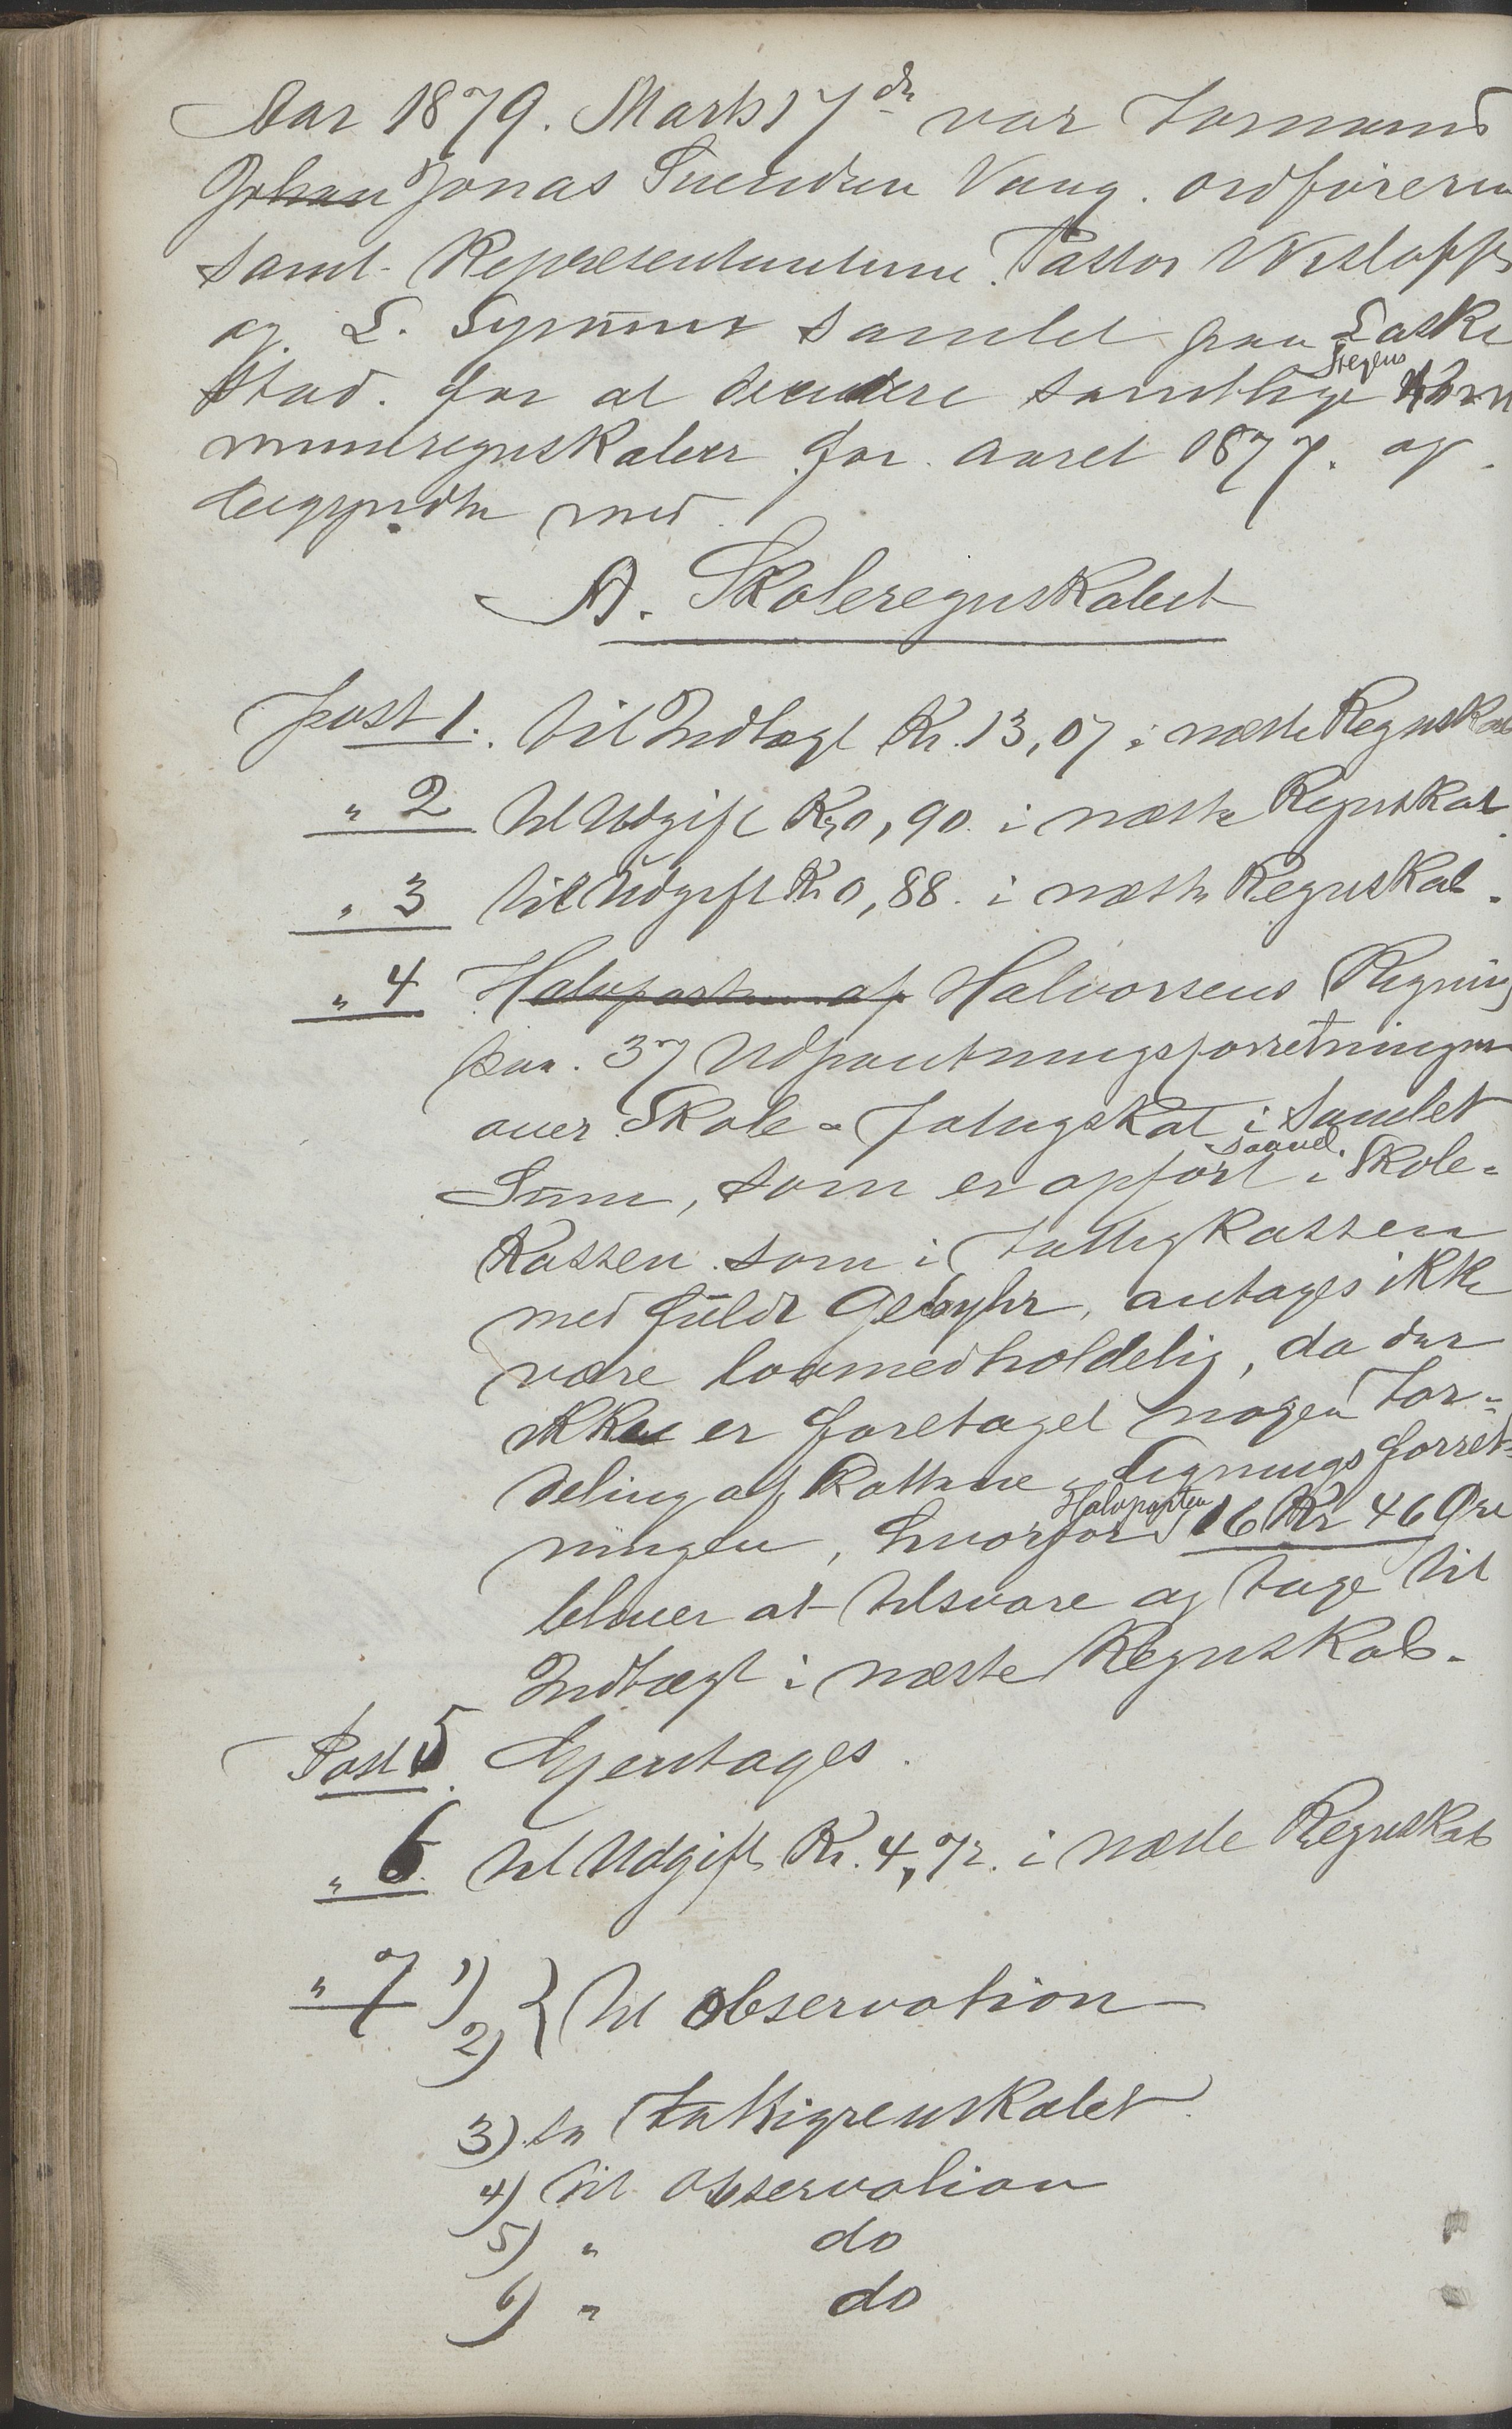 Aar 1879. Marts 17de var Formand
Johan Jonas Svendsen Vang. ordføreren
samt Representanterne Pastor Wisløff
og L. Synnes samlet paa Laske
stad. for at decidere samtlige Stegens Kom
muneregnskaber for aaret 1877. og
begyndte med
A. Skoleregnskabet
Post 1. til Indtægt Kr. 13,07 i næste Regnskab
" 2 til Udgift Kr 0,90. i næste Regnskab
" 3 til Udgift Kr 0,88. i næste Regnskab.
" 4 Halvparten af Halvorsens Regning
paa. 37 Udpantningsforretninger
over Skole- Fatigskat i samlet
Sum, som er opført saavel i Skole-
Kassen som i Fattigkassen
med fuldt Gebyhr, antages ikke
være lovmedholdelig, da der
ikke er foretaget nogen For-
deling af Skattene i Ligningsforret-
ningen, hvorfor Halvparten 16 Kr 46 Øre
bliver at tilsvare og tage til
Indtægt i næste Regnskab.
Post 5 Gjentages.
" 6 til Udgift Kr. 4,72. i næste Regnskab
" 7 1) } til observation
2)
3) to Fattigrenskabet
4) til observation
5) " do
6) " do